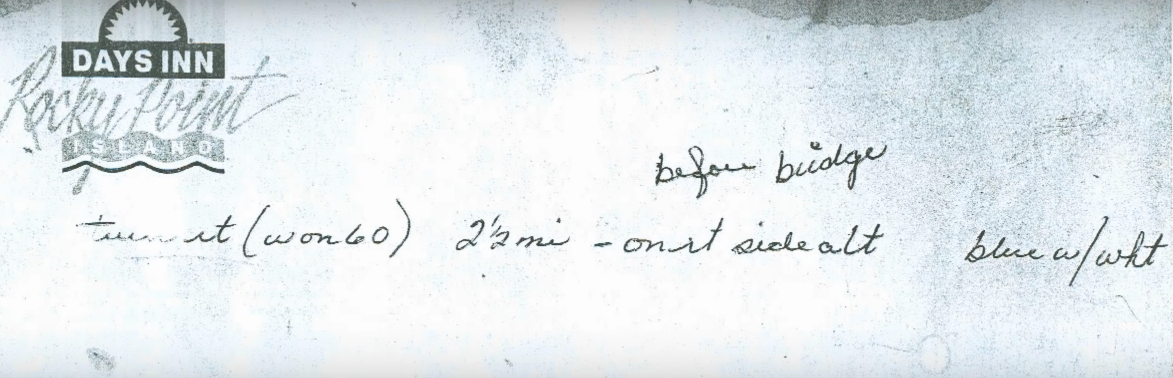 DAYS INN
Rocky Point
ISLAND
before bridge
turn rt (w on 60) 2½ mi - on rt side alt blue w/wht